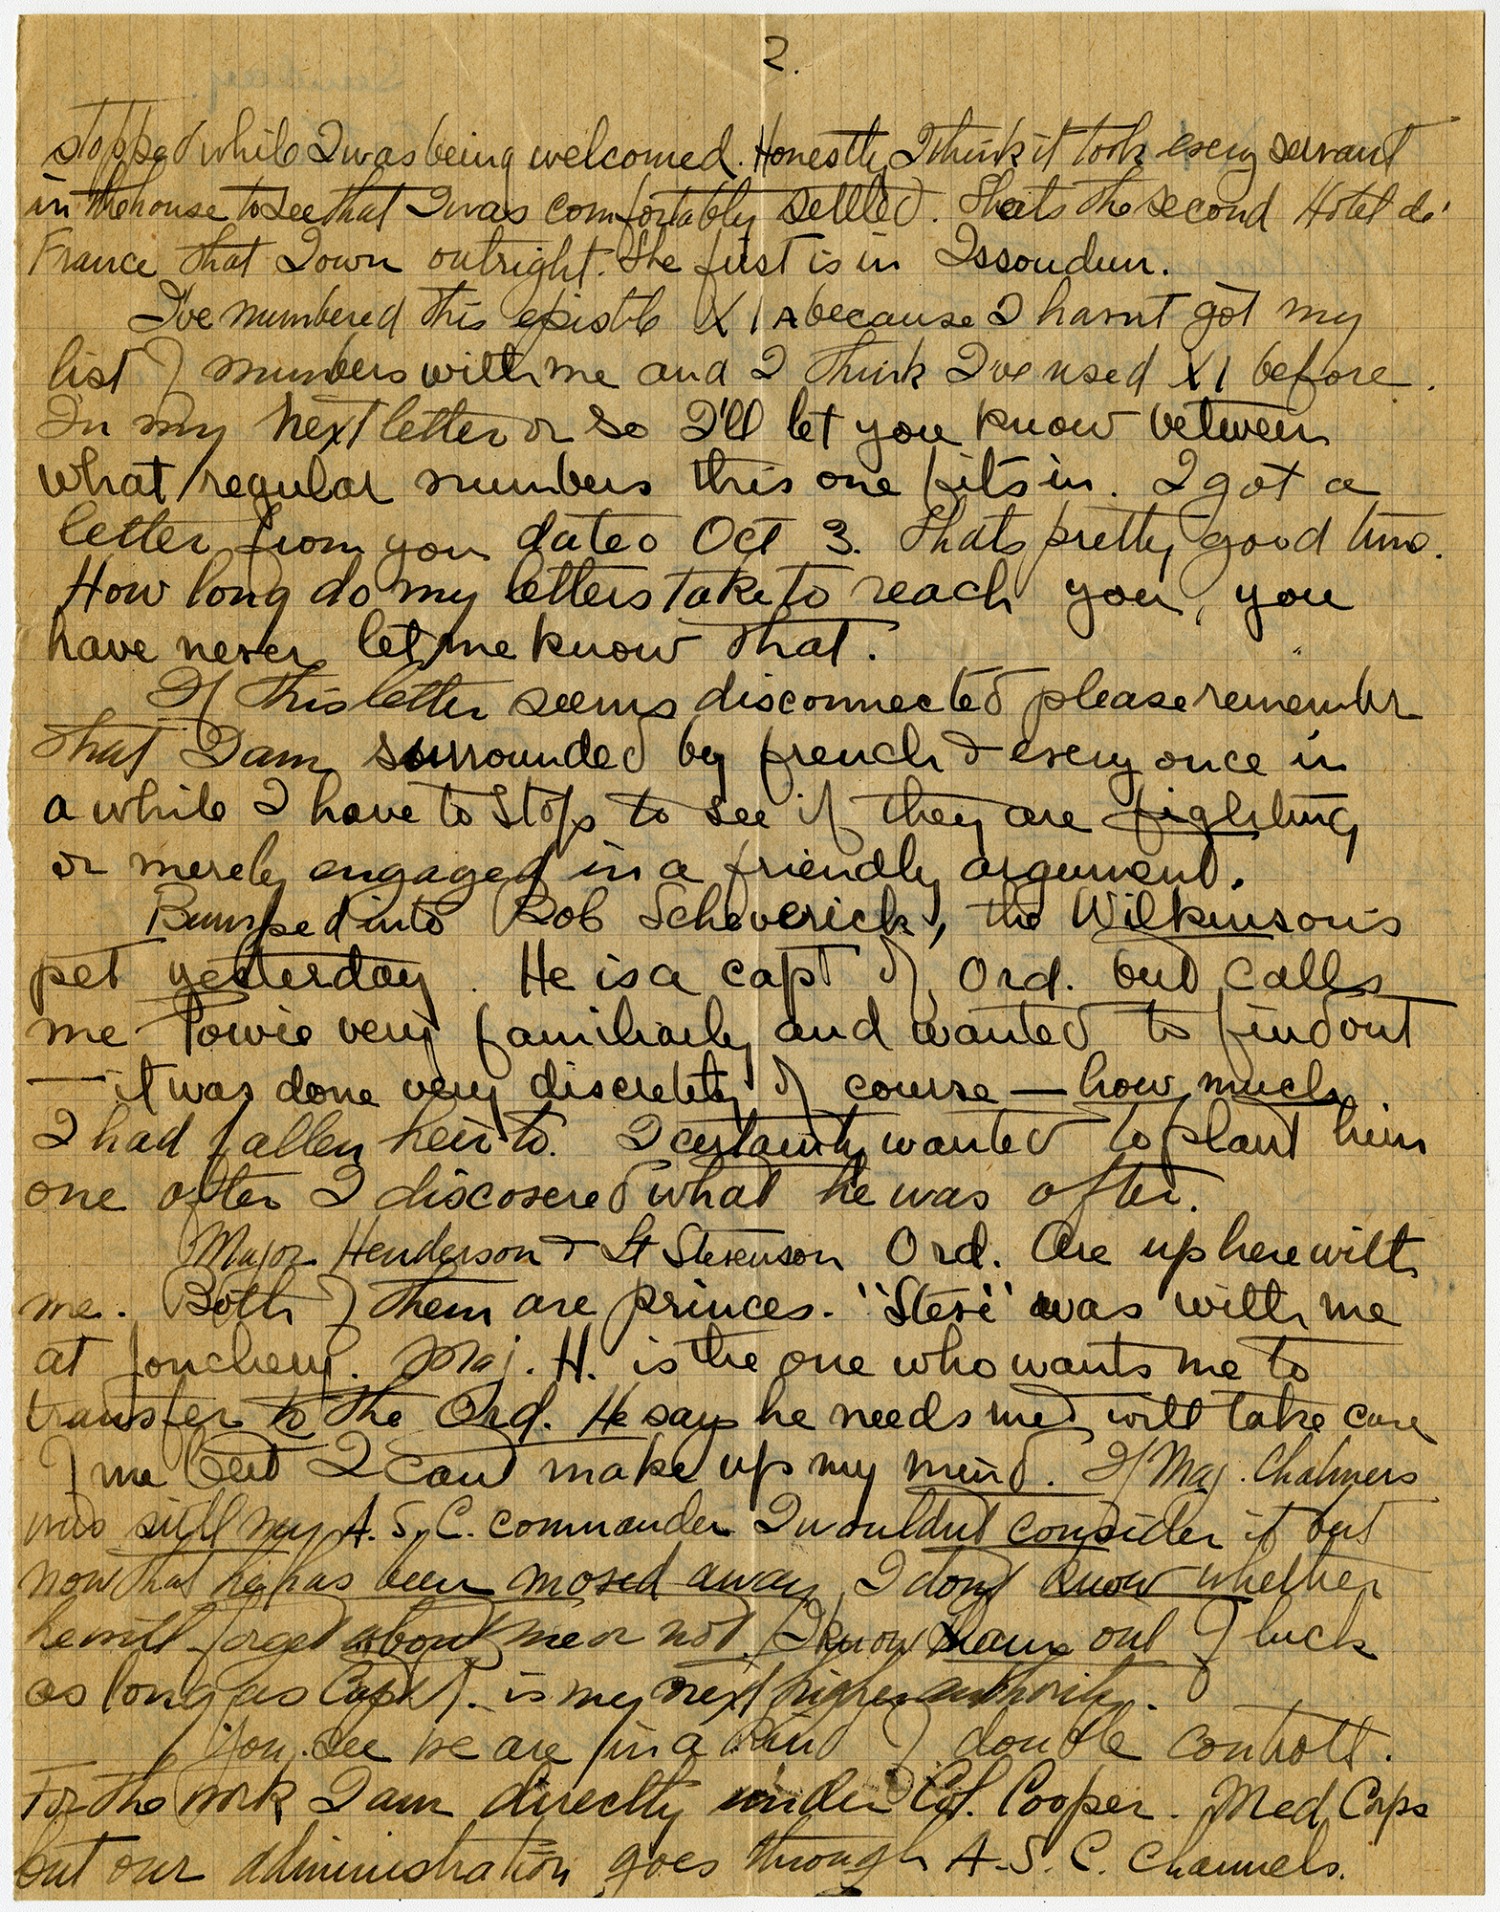 2.
stopped while I was being welcomed. Honestly, I think it took every servant
in the house to see that I was comfortably settled. That's the second Hotel de
France that I own outright. The first is in Issoudun.
I've numbered this epistle XI A because I hasnt got my
list of numbers with me and I think I've used XI before.
In my next letter or so I'll let you know between
what regular numbers this one fits in. I got a
letter from you dated Oct 3. Thats pretty good time.
How long do my letters take to reach you, you
have never let me know that.
If this letter seems disconnected please remember
that I am surrounded by french & every once in
a while I have to stop to see if they are fighting
or merely engaged in a friendly argument.
Bumped into Bob Scheverick, the Wilkinson's
pet yesterday. He is a capt of Ord. but calls
me Powie very familiarly and wanted to find out
— it was done very discretely of course — how much
I had fallen heir to. I certainly wanted to plant him
one after I discovered what he was after.
Major Henderson & Lt Stevenson Ord. are up here with
me. Both of them are princes. "Steve" was with me
at Jonchery. Maj. H. is the one who wants me to
transfer to the Ord. He says he needs me & will take care
of me but I cant make up my mind. If Maj. Chalmers
was still my A.S.C. commander I wouldnt consider it but
now that he has been moved away I dont know whether
he will forget about me or not. I know I am out of luck
as long as Capt is my next higher authority.
You see we are in a kind of double controll.
For the work I am directly under Col. Cooper. Med Corps
but our administration goes through A.S.C. channels.